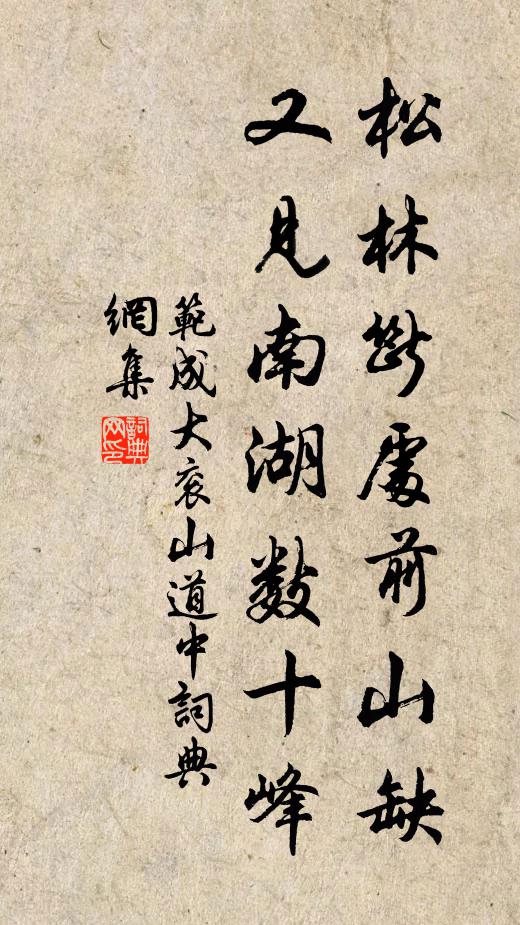 松林斷處前山缺
又見南湖數十峰
範成大袞山道中詞典
網集
詞典
网印